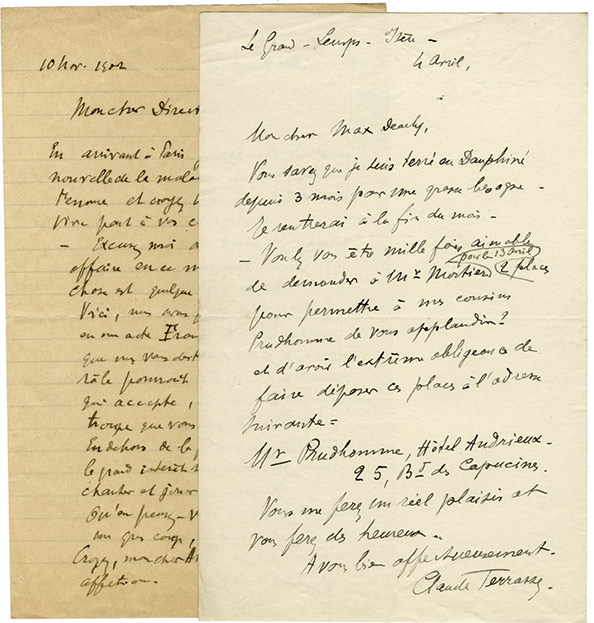 10 Nov. 1902
Mon cher Direct
En arrivant à Paris
nouvelle de la mala
femme et croyez
vive part à vos c
— Excusez moi d
affaire en ce m
chose est quelque
Voici, nous avons
en un acte
que nous vous dest
rôle pourrait
qui accepte,
troupe que vous
En dehors de la
le grand intérêt
chanter et jouer
Qu'en pensez-v
un gros
Croyez, mon cher
affection.
Le Grand-Lemps-Isère-
4 Avril,
Mon cher Max Dearly,
Vous savez que je suis terré en Dauphiné
depuis 3 mois pour une grosse besogne -
Je rentrerai à la fin du mois -
- Voulez vous être mille fois aimable
pour le 13 Avril
de demander à Mr Mortier 2 places
pour permettre à mes cousins
Prudhomme de vous applaudir?
et d'avoir l'extrême obligeance de
faire déposer ces places à l'adresse
suivante =
Mr Prudhomme, Hôtel Andrieux-
25, Bd des Capucines.
Vous me ferez un réel plaisir et
vous ferez des heureux -
A vous bien affectueusement.
Claude Terrasse